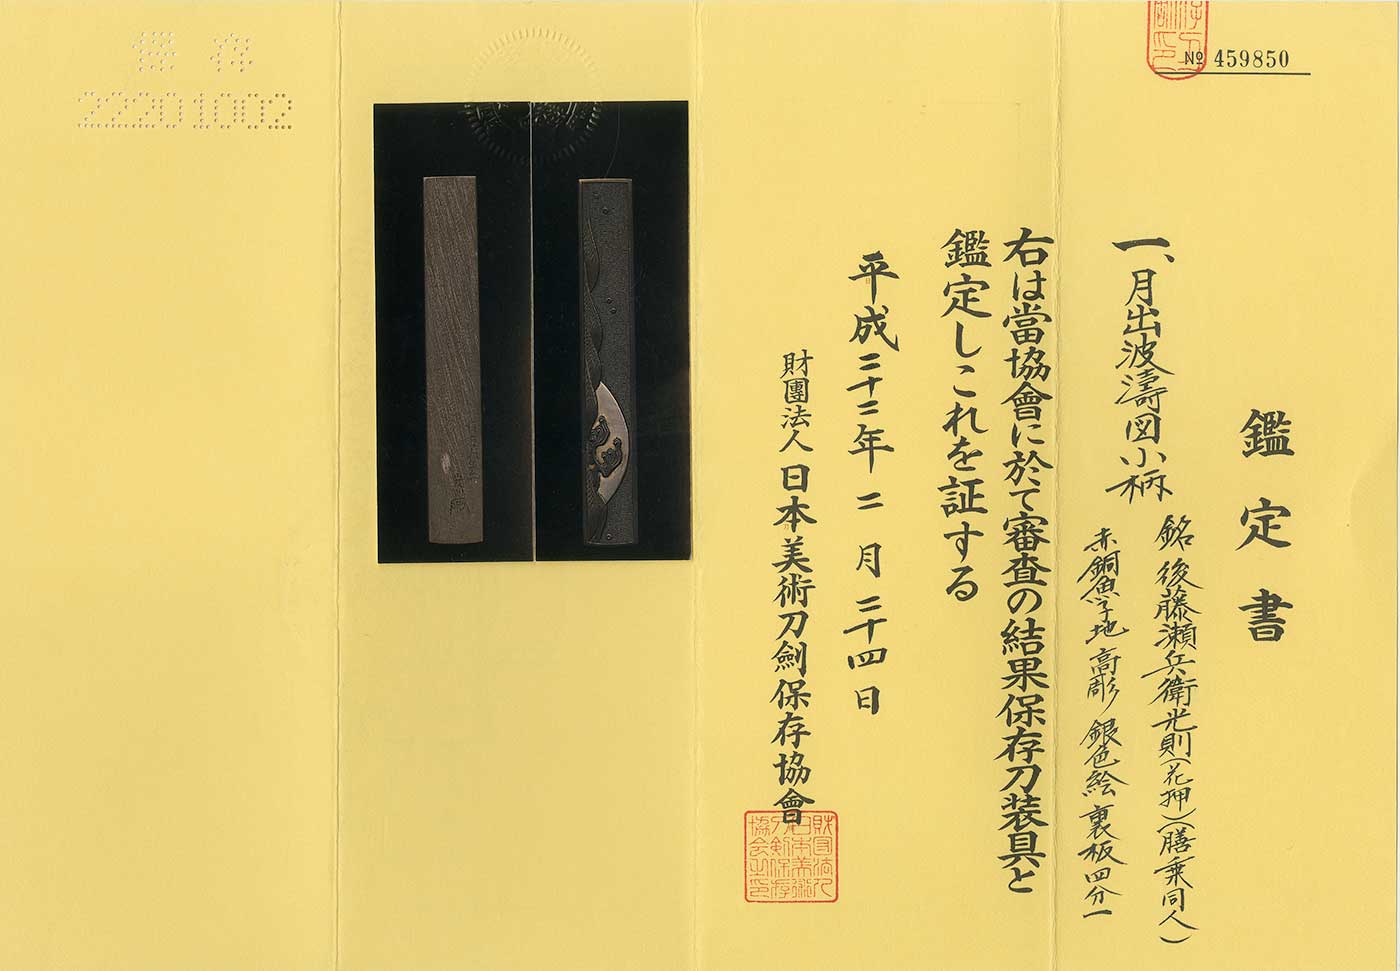 № 459850
鑑定書
一、月出波濤図小柄
銘 後藤瀬兵衛光則(花押)(膳乗同人)
赤銅魚子地 高彫 銀色絵 裏板四分一
右は當協會に於て審査の結果保存刀装具と
鑑定しこれを証する
平成二十二年二月二十四日
財團法人日本美術刀劍保存協會
財団法人
日本美術
刀剣保存
協会之印
保存
22201002